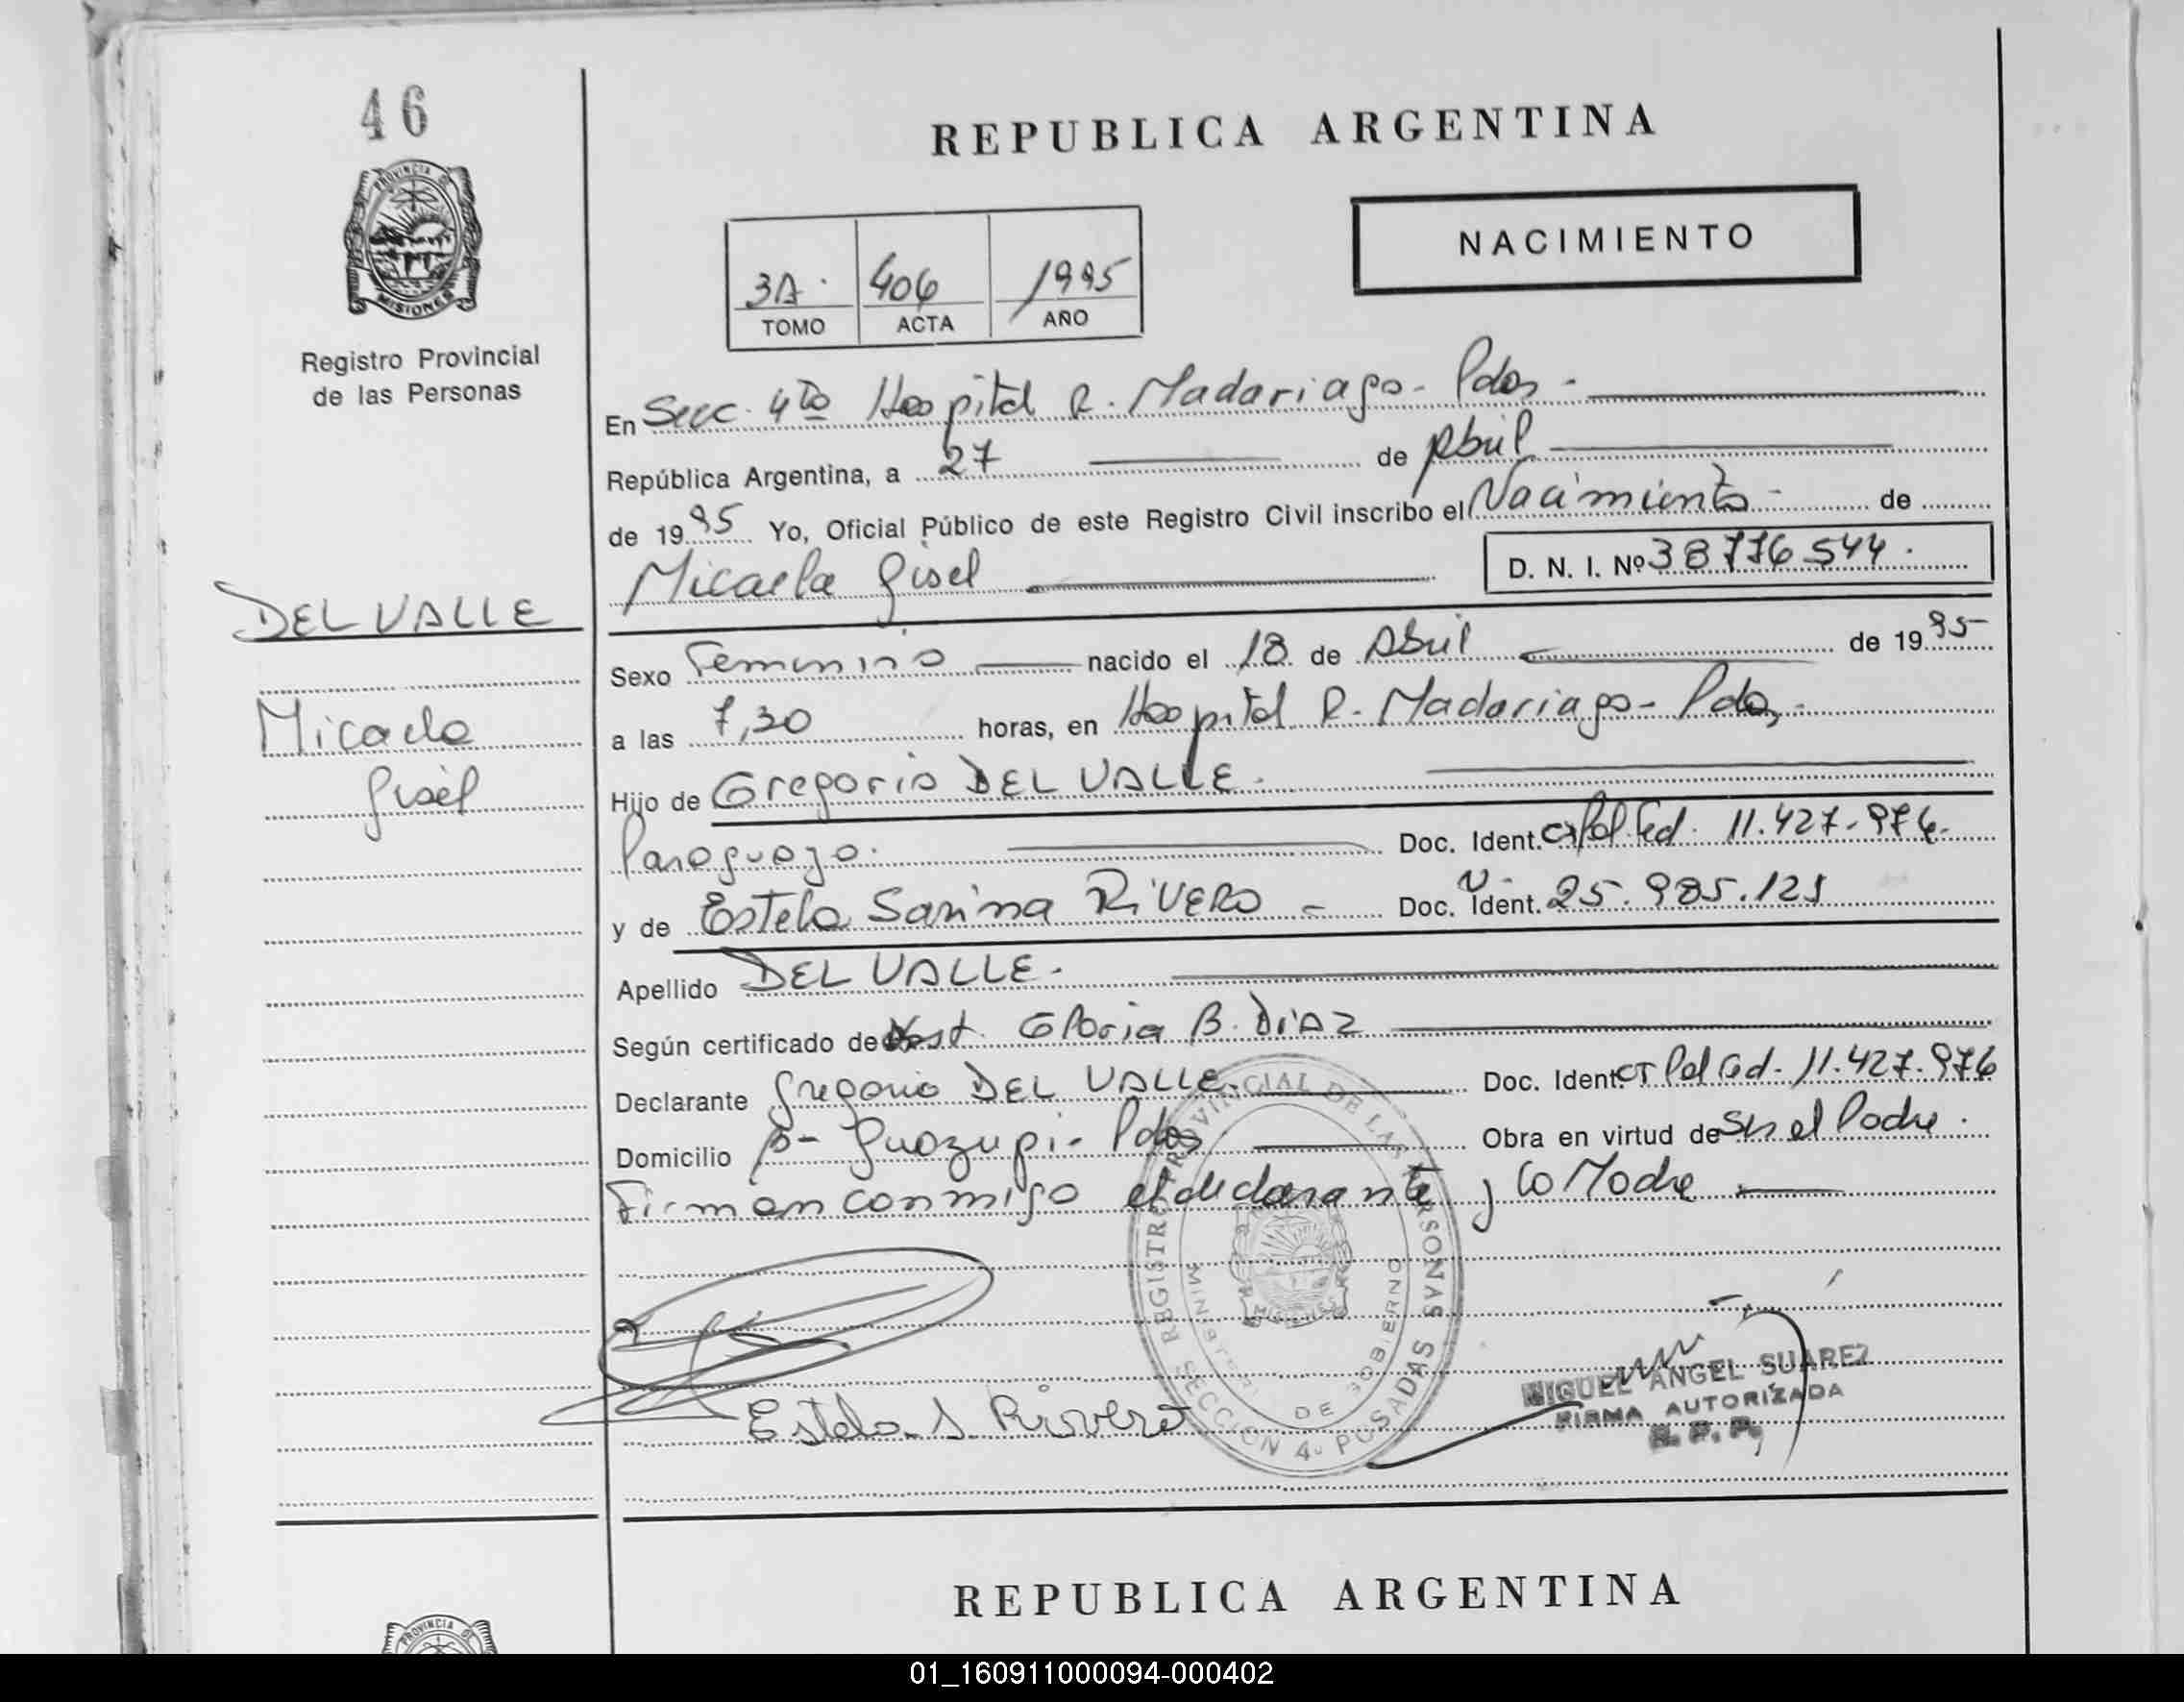 46
PROVINCIA DE
MISIONES
Registro Provincial
de las Personas
DEL VALLE
Micaela
Gisel
REPUBLICA ARGENTINA
NACIMIENTO
3A 406 1995
TOMO ACTA AÑO
En Secc. 4ta Hospital R. Madariaga - Pdas -
República Argentina, a 27 de Abril
de 1995 Yo, Oficial Público de este Registro Civil inscribo el Nacimiento - de
Micaela Gisel D. N. I. Nº 38776544.
Sexo Femenino nacido el 18 de Abril de 1995
a las 7,30 horas, en Hospital R. Madariaga - Pdas,-
Hijo de Gregorio DEL VALLE.
Paraguayo. Doc. Ident. CI Pol. Fed. 11.427.976.
y de Estela Sarina RIVERO - Doc. Ident. 25.985.121
Apellido DEL VALLE.
Según certificado de Obst. Gloria B. DIAZ
Declarante Gregorio DEL VALLE. Doc. Ident CI Pol Fed. 11.427.976
Domicilio Bº- Guazupi- Pdas Obra en virtud de Ser el Padre.
Firman conmigo el declarante y la Madre
Estela S. Rivero
REGISTRO PROVINCIAL DE LAS PERSONAS
MINISTERIO DE GOBIERNO
SECCION 4a POSADAS
MIGUEL ANGEL SUAREZ
FIRMA AUTORIZADA
R. P. P.
REPUBLICA ARGENTINA
PROVINCIA DE
01_160911000094-000402